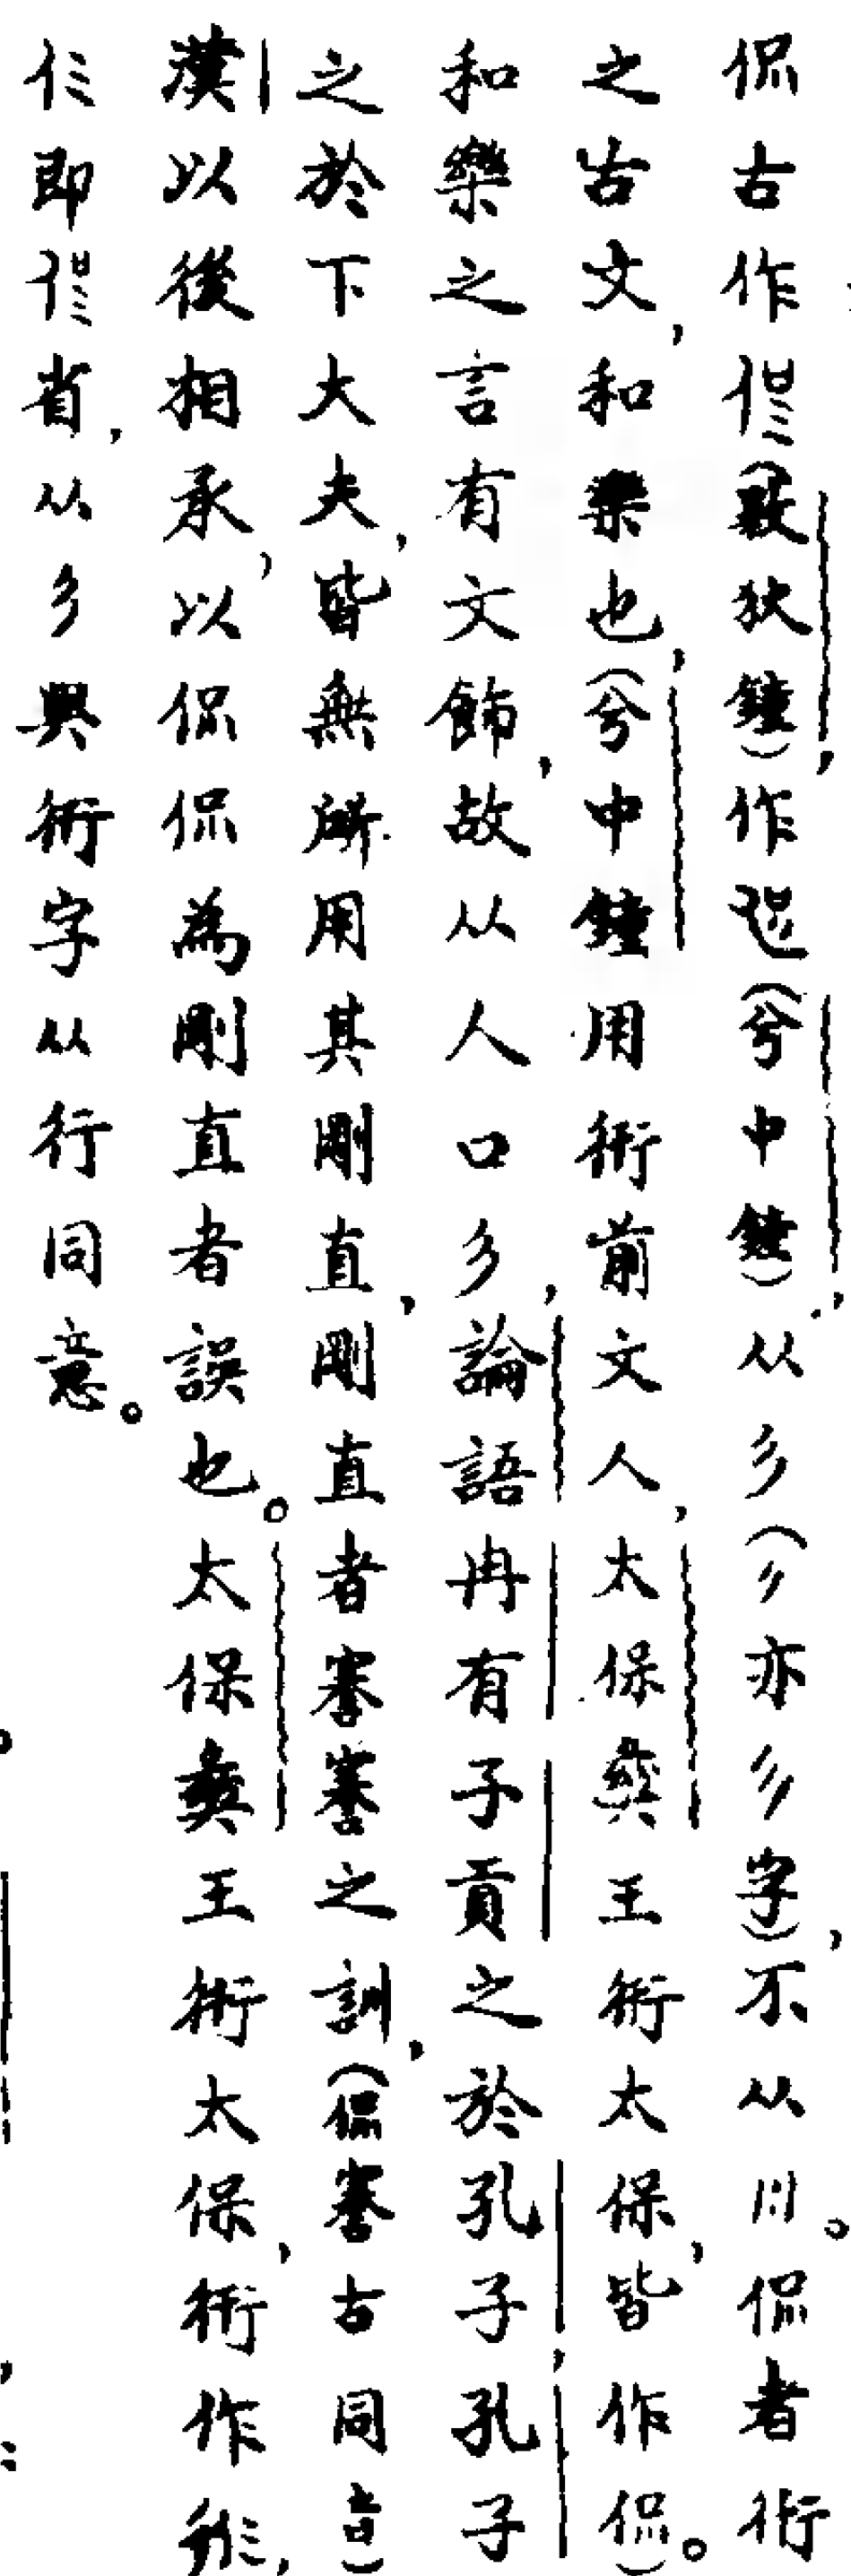 侃古作(㪤狄鐘)，作(兮中鐘)，从彡(彡亦彡字)，不从川。侃者衎
之古文，和樂也，(兮中鐘用衎前文人，太保彝王衎太保，皆作侃)。
和樂之言有文飾，故从人口彡，論語冉有子貢之於孔子，孔子
之於下大夫，皆無所用其剛直，剛直者謇謇之訓，(侃謇古同音)
漢以後相承，以侃侃為剛直者誤也。太保彝王衎太保，衎作，
即省，从彡與衎字从行同意。